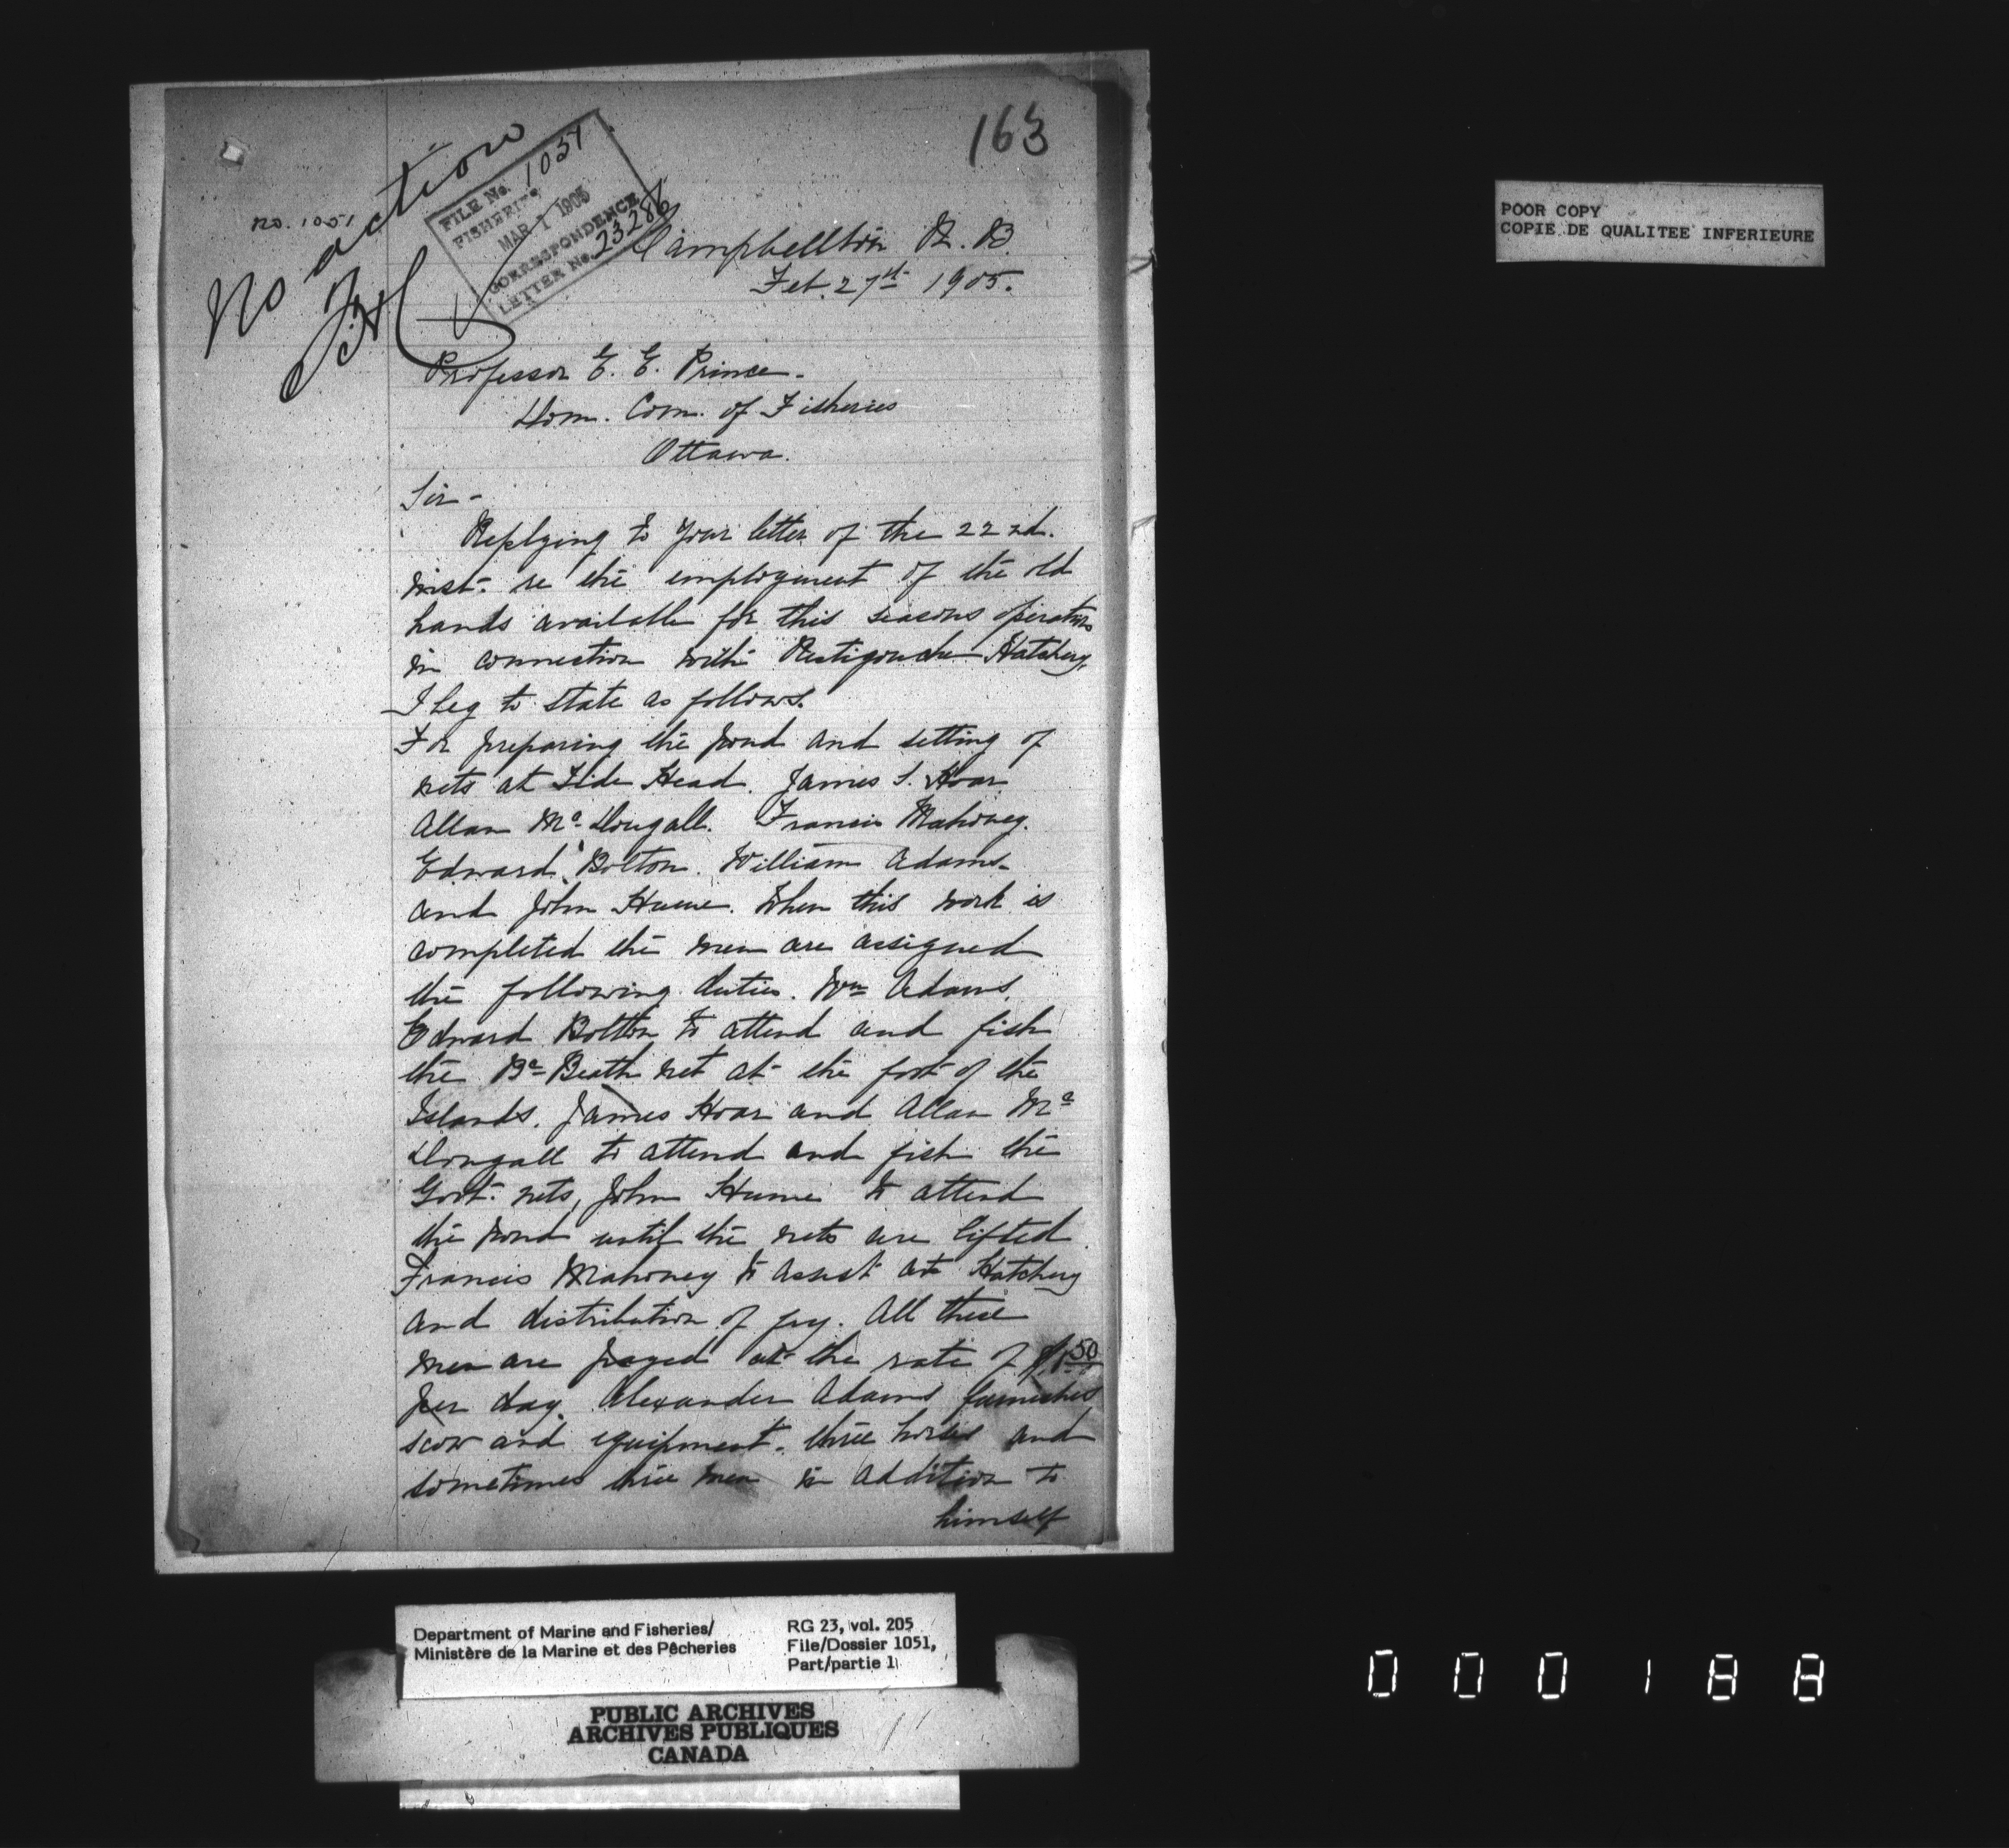 163
No action
No. 1051
FILE No. 1051
FISHERIES
MAR 1 1905
CORRESPONDENCE
LETTER No. 23286
Campbellton N. B.
Feb. 27th 1905.
Professor E. E. Prince -
Dom. Com. of Fisheries
Ottawa.
Sir -
Replying to your letter of the 22nd.
inst. re the employment of the old
hands available for this seasons operations
in connection with Restigouche Hatchery,
I beg to state as follows.
For preparing the pond and setting of
nets at Tide Head. James S. Hoar
Allan Mc Dougall. Francis Mahoney.
Edward Bolton. William Adams.
and John Hume. When this work is
completed the men are assigned
the following duties. Wm Adams.
Edward Bolton to attend and fish
the Beath net at the foot of the
Islands. James Hoar and Allan Mc
Dougall to attend and fish the
Govt. nets, John Hume to attend
the pond until the nets are lifted.
Francis Mahoney to assist at Hatchery
and distribution of fry. All these
men are payed at the rate of $1.50
per day. Alexander Adams furnishes
scow and equipment. three horses and
sometimes three men in addition to
himself
POOR COPY
COPIE DE QUALITEE INFERIEURE
Department of Marine and Fisheries/
Ministère de la Marine et des Pêcheries
RG 23, vol. 205
File/Dossier 1051,
Part/partie 1
PUBLIC ARCHIVES
ARCHIVES PUBLIQUES
CANADA
000188